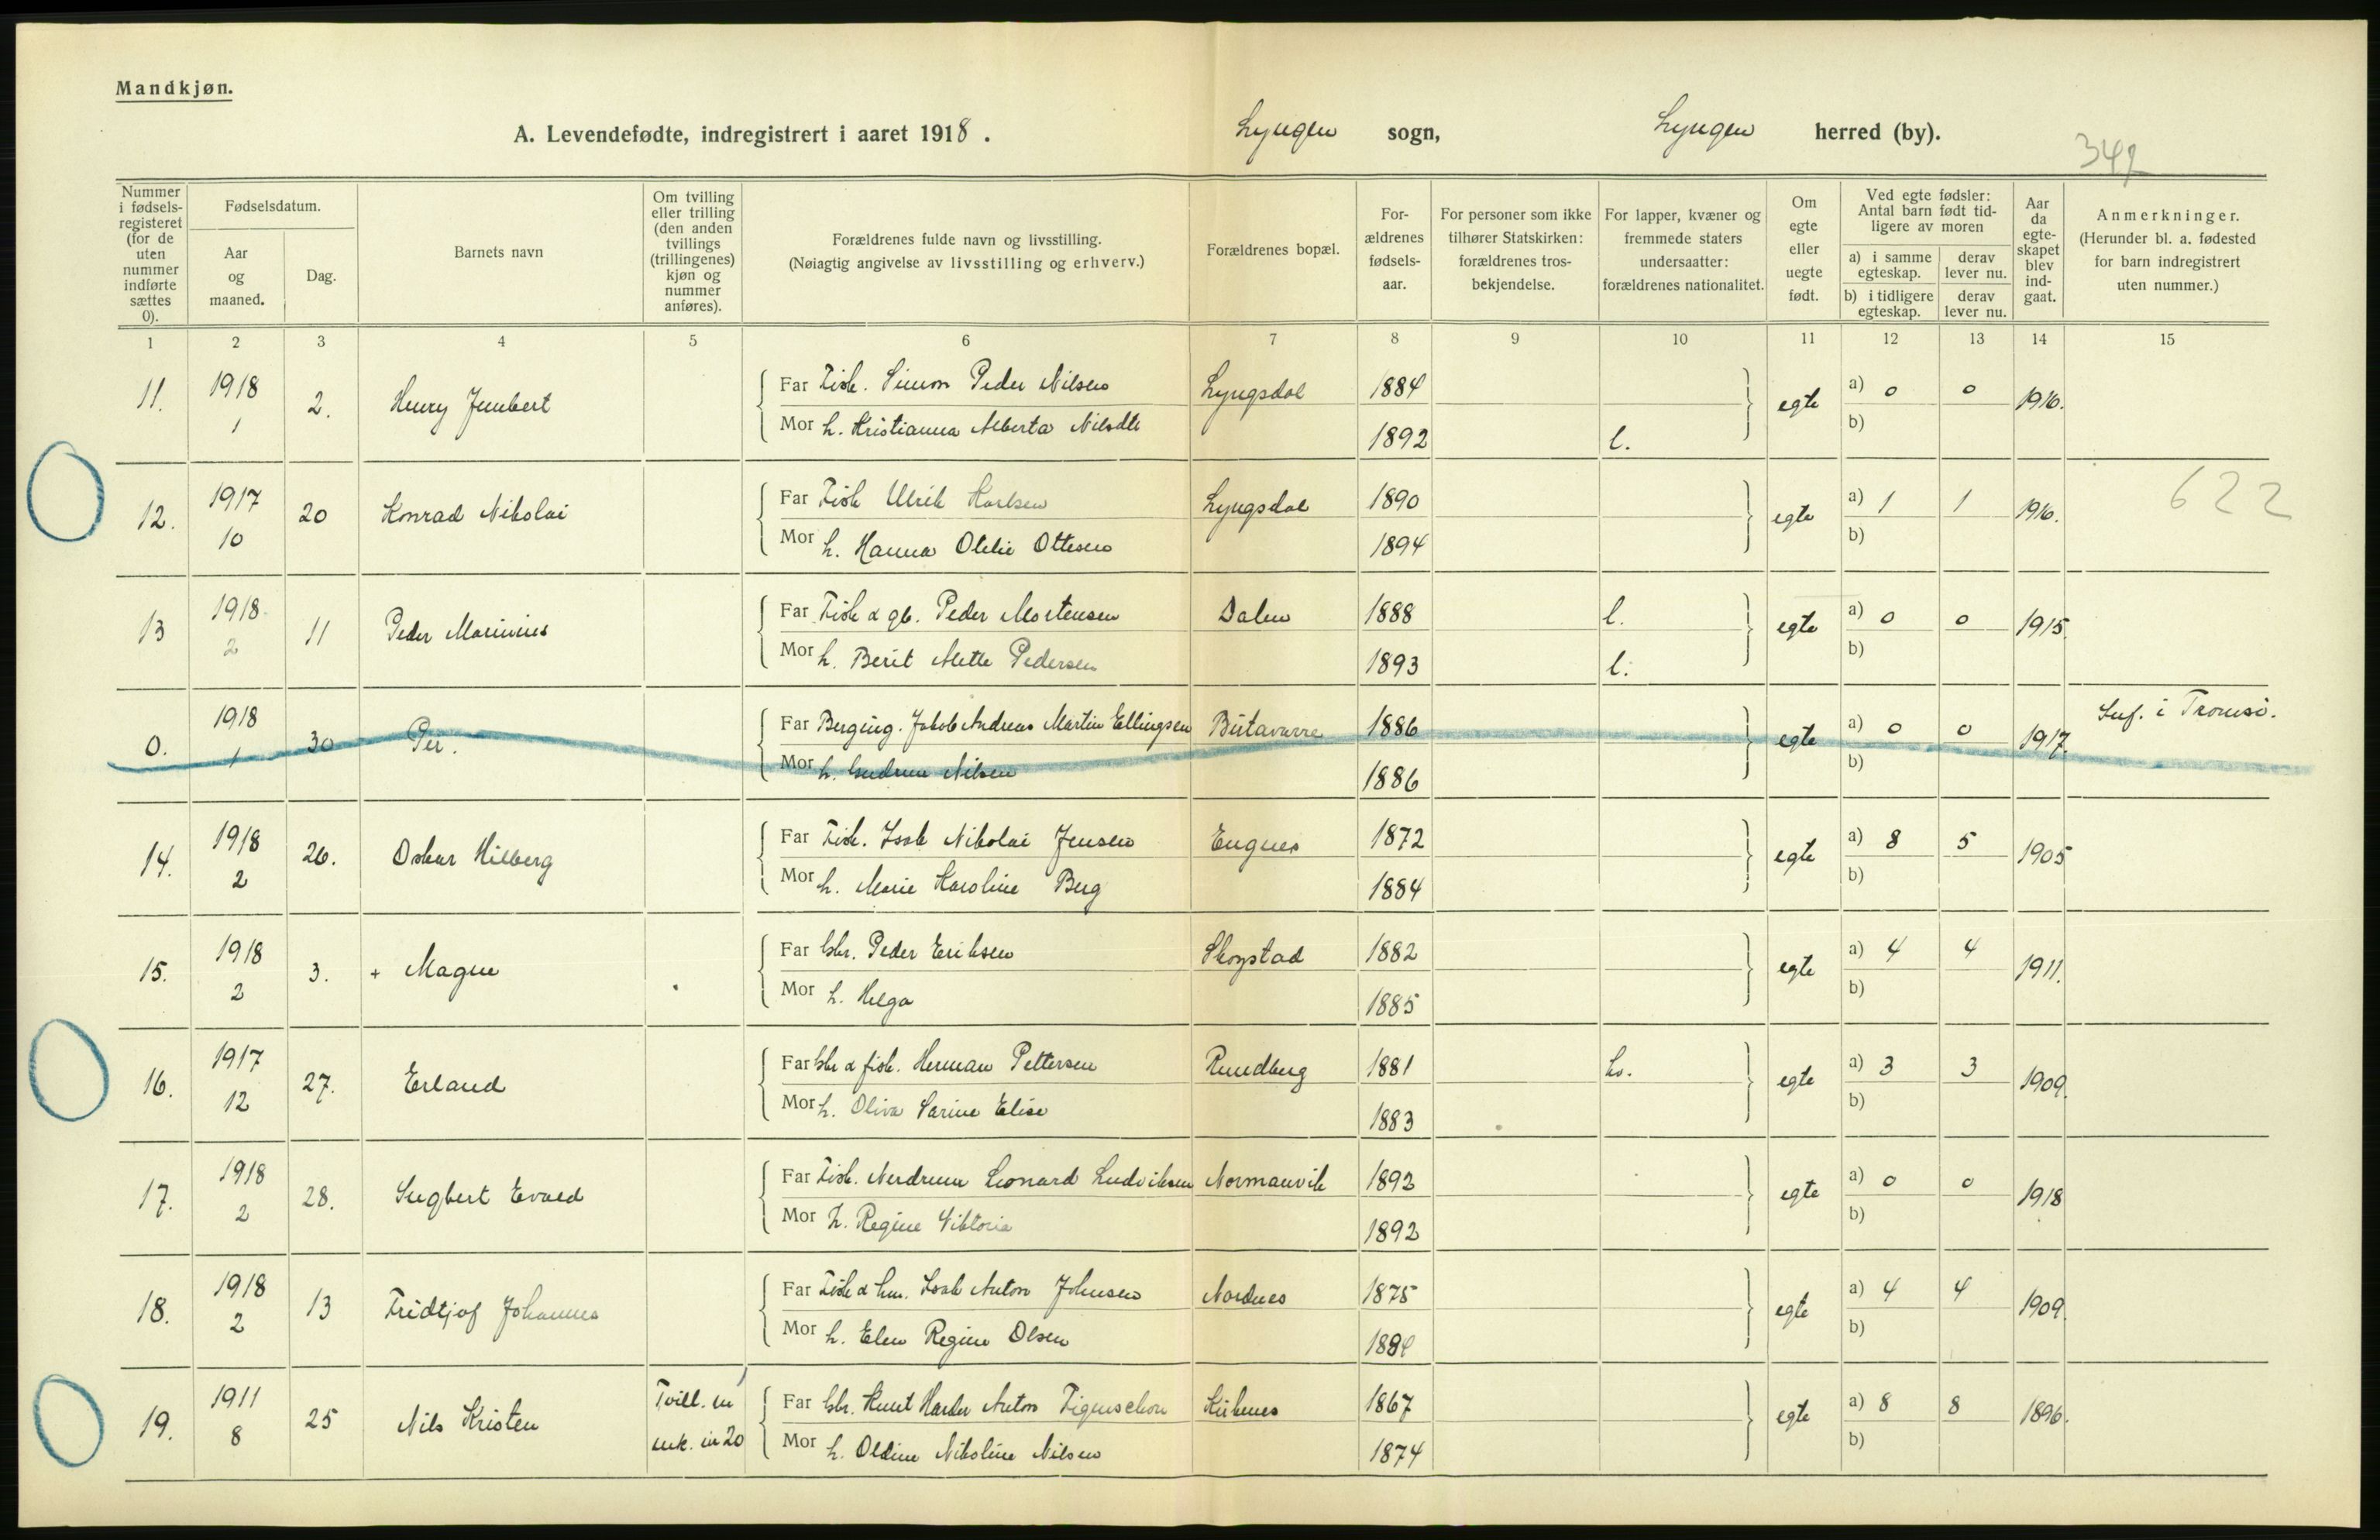 Mandkjøn.
A. Levendefødte, indregistrert i aaret 1918. Lyngen sogn, Lyngen herred (by).
342
Nummer i fødselsregisteret (for de uten nummer indførte sættes 0).
Fødselsdatum.
Aar og maaned.
Dag.
Barnets navn
Om tvilling eller trilling (den anden tvillings (trillingenes) kjøn og nummer anføres).
Forældrenes fulde navn og livsstilling.
(Nøiagtig angivelse av livsstilling og erhverv.)
Forældrenes bopæl.
For-ældrenes fødsels-aar.
For personer som ikke tilhører Statskirken: forældrenes tros-bekjendelse.
For lapper, kvæner og fremmede staters undersaatter: forældrenes nationalitet.
Om egte eller uegte født.
Ved egte fødsler: Antal barn født tid-ligere av moren
a) i samme egteskap. derav lever nu.
b) i tidligere egteskap. derav lever nu.
Aar da egte-skapet blev ind-gaat.
Anmerkninger.
(Herunder bl. a. fødested for barn indregistrert uten nummer.)
1 2 3 4 5 6 7 8 9 10 11 12 13 14 15
11. 1918 1 2. Henry Junbert
Far Fisk. Simon Peder Nilsen Lyngsdal 1884 egte a) 0 0 1916.
Mor h. Kristianna Alberta Nilsdtr 1892 l. b)
12. 1917 10 20 Konrad Nikolai
Far Fisk Ulrik Karlsen Lyngsdal 1890 egte a) 1 1 1916. 622
Mor h. Hanna Otelie Ottesen 1894 b)
13 1918 2 11 Peder Marinius
Far Fisk & gb. Peder Mortensen Dalen 1888 l. egte a) 0 0 1915.
Mor h. Berit Mette Pedersen 1893 l. b)
0. 1918 1 30 Per.
Far Berging. Jakob Andreas Martin Ellingsen Birtavarre 1886 egte a) 0 0 1917. i Tromsø.
Mor h. Gudrun Nilsen 1886 b)
14. 1918 2 26. Oskar Hilberg
Far Fisk. Isak Nikolai Jensen Engnes 1872 egte a) 8 5 1905
Mor h. Marie Karoline Berg 1884 b)
15. 1918 2 3. + Magne
Far Gbr. Peder Eriksen Skogstad 1882 egte a) 4 4 1911.
Mor h. Helga 1885 b)
16. 1917 12 27. Erland
Far Gbr & fisk. Herman Pettersen Rundberg 1881 kv. egte a) 3 3 1909.
Mor h. Oliva Sarine Elise 1883 b)
17. 1918 2 28. Sugbert Evald
Far Fisk. Nerdrum Leonard Ludviksen Normanvik 1892 egte a) 0 0 1918
Mor h. Regine Viktoria 1892 b)
18. 1918 2 13 Fridtjof Johannes
Far Fisk & hm. Isak Anton Johnsen Nordnes 1875 egte a) 4 4 1909.
Mor h. Elen Regine Olsen b)
19. 1911 8 25 Nils Kristen Tvill. m
Far Gbr. Knut Harder Anton Figenschou Kirkenes 1867 egte a) 8 8 1896.
Mor h. Oldine Nikoline Nilsen 1874 b)